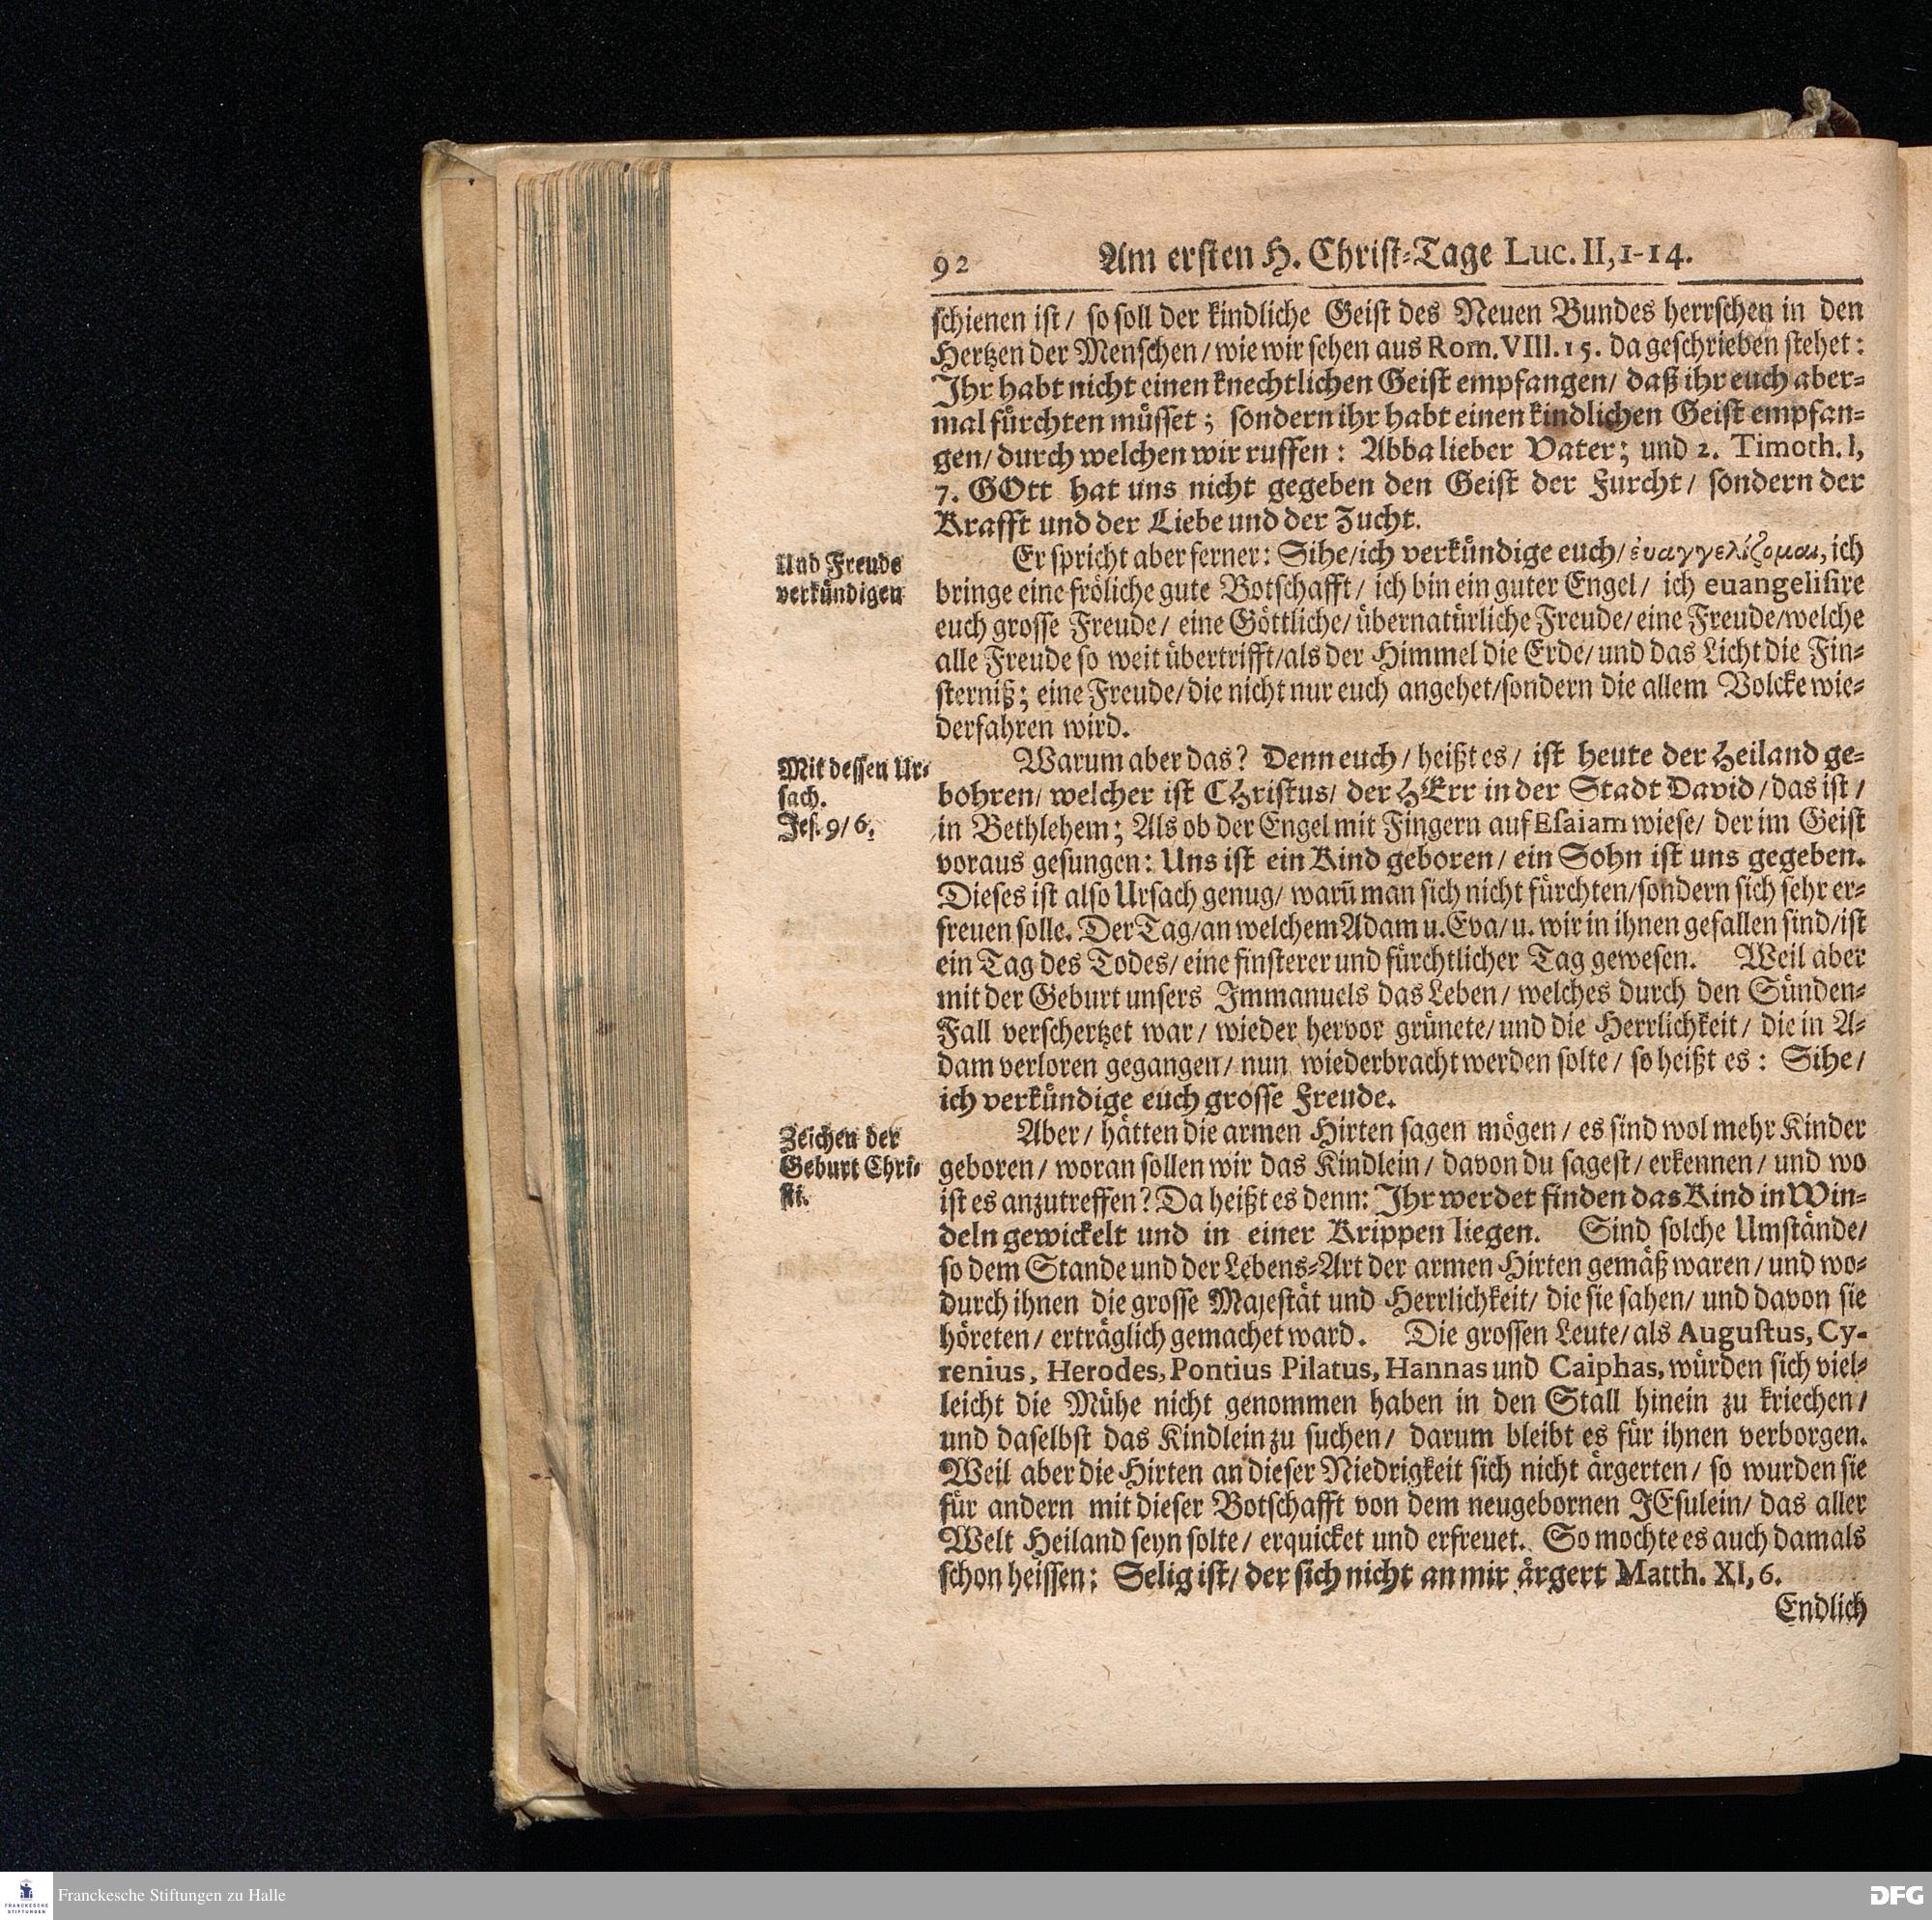 92 Am ersten H. Christ-Tage Luc. II, 1-14.
schienen ist/ so soll der kindliche Geist des Neuen Bundes herrschen in den
Hertzen der Menschen/ wie wir sehen aus Rom. VIII. 15. da geschrieben stehet:
Ihr habt nicht einen knechtlichen Geist empfangen/ daß ihr euch aber-
mal fürchten müsset; sondern ihr habt einen kindlichen Geist empfan-
gen/ durch welchen wir ruffen: Abba lieber Vater; und 2. Timoth. I,
7. GOtt hat uns nicht gegeben den Geist der Furcht/ sondern der
Krafft und der Liebe und der Zucht.
Und Freude
verkündigen
Er spricht aber ferner: Sihe/ ich verkündige euch/ ἐυαγγελίζομαι, ich
bringe eine fröliche gute Botschafft/ ich bin ein guter Engel/ ich euangelisire
euch grosse Freude/ eine Göttliche/ übernatürliche Freude/ eine Freude/ welche
alle Freude so weit übertrifft/ als der Himmel die Erde/ und das Licht die Fin-
sterniß; eine Freude/ die nicht nur euch angehet/ sondern die allem Volcke wie-
derfahren wird.
Mit dessen Ur-
sach.
Jes. 9/ 6.
Warum aber das? Denn euch/ heißt es/ ist heute der Heiland ge-
bohren/ welcher ist CHristus/ der HErr in der Stadt David/ das ist/
in Bethlehem; Als ob der Engel mit Fingern auf Esaiam wiese/ der im Geist
voraus gesungen: Uns ist ein Kind geboren/ ein Sohn ist uns gegeben.
Dieses ist also Ursach genug/ warū man sich nicht fürchten/ sondern sich sehr er-
freuen solle. Der Tag/ an welchem Adam u. Eva/ u. wir in ihnen gefallen sind/ ist
ein Tag des Todes/ eine finsterer und fürchtlicher Tag gewesen. Weil aber
mit der Geburt unsers Immanuels das Leben/ welches durch den Sünden-
Fall verschertzet war/ wieder hervor grünete/ und die Herrlichkeit/ die in A-
dam verloren gegangen/ nun wiederbracht werden solte/ so heißt es: Sihe/
ich verkündige euch grosse Freude.
Zeichen der
Geburt Chri-
sti.
Aber/ hätten die armen Hirten sagen mögen/ es sind wol mehr Kinder
geboren/ woran sollen wir das Kindlein/ davon du sagest/ erkennen/ und wo
ist es anzutreffen? Da heißt es denn: Ihr werdet finden das Kind in Win-
deln gewickelt und in einer Krippen liegen. Sind solche Umstände/
so dem Stande und der Lebens-Art der armen Hirten gemäß waren/ und wo-
durch ihnen die grosse Majestät und Herrlichkeit/ die sie sahen/ und davon sie
höreten/ erträglich gemachet ward. Die grossen Leute/ als Augustus, Cy-
renius, Herodes, Pontius Pilatus, Hannas und Caiphas, würden sich viel-
leicht die Mühe nicht genommen haben in den Stall hinein zu kriechen/
und daselbst das Kindlein zu suchen/ darum bleibt es für ihnen verborgen.
Weil aber die Hirten an dieser Niedrigkeit sich nicht ärgerten/ so wurden sie
für andern mit dieser Botschafft von dem neugebornen JEsulein/ das aller
Welt Heiland seyn solte/ erquicket und erfreuet. So mochte es auch damals
schon heissen: Selig ist/ der sich nicht an mir ärgert Matth. XI, 6.
Endlich
FRANCKESCHE
STIFTUNGEN
Franckesche Stiftungen zu Halle
DFG